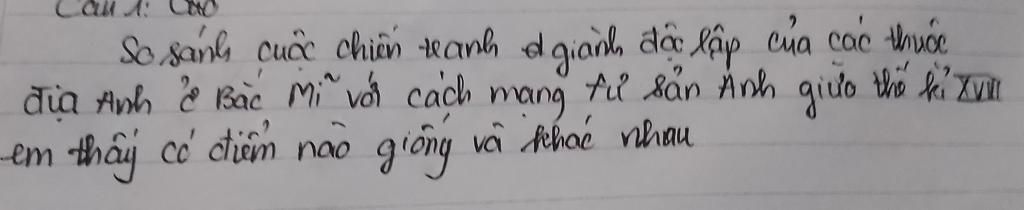 Câu 1: Cao
So sánh cuộc chiến tranh d giành độc lập của các thuộc
địa Anh ở Bắc Mĩ với cách mạng tư sản Anh giữa thế kỉ XVII
em thấy có điểm nào giống và khác nhau